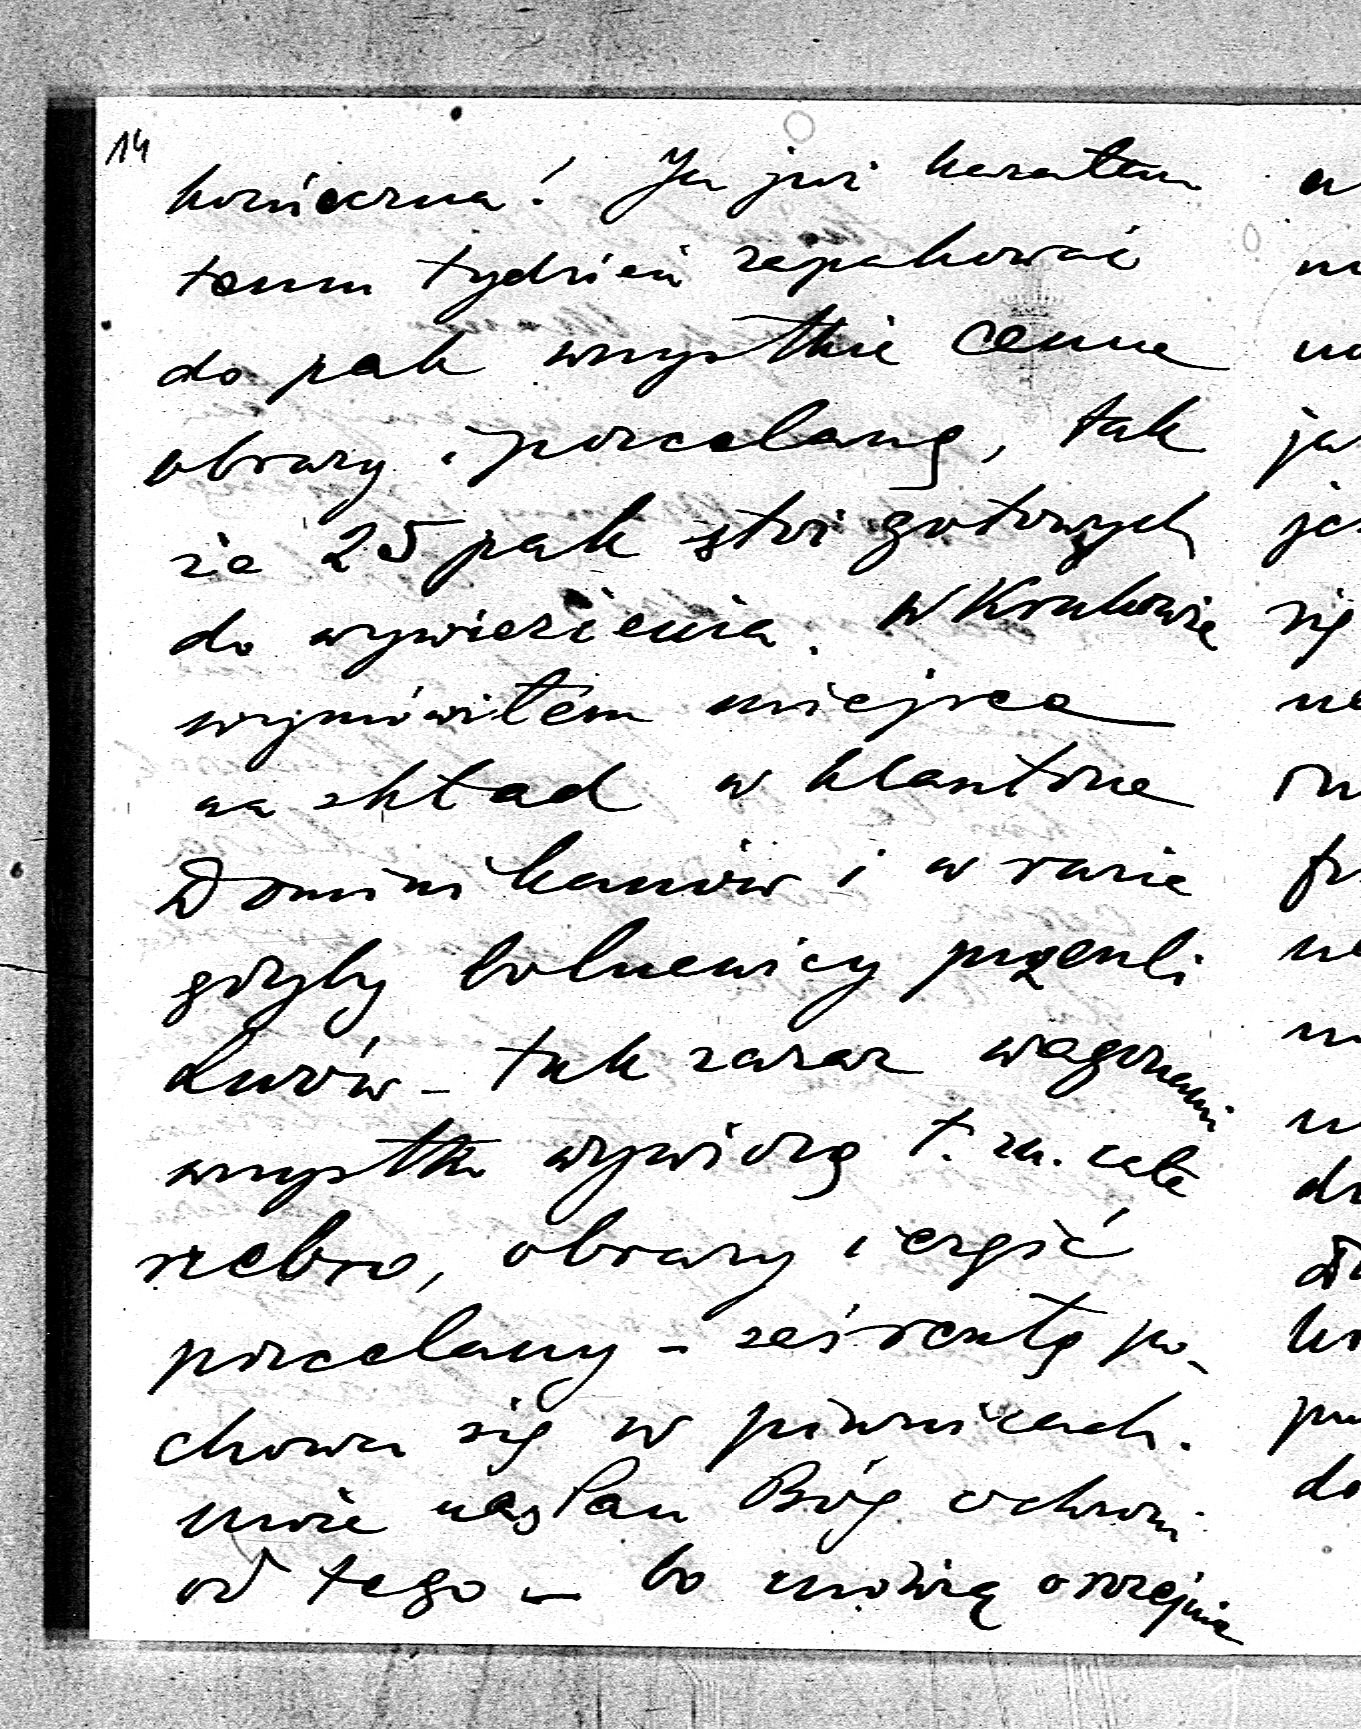 14
konieczna! Ja już kazałem
temu tydzień zapakować
do pak wszystkie cenne
obrazy i porcelanę, tak
że 25 pak stoi gotowych
do wywiezienia. W Krakowie
wymówiłem miejsce
na skład w klasztorze
Dominikanów i w razie
gdyby bolszewicy przeszli
Lwów – tak zaraz wagonami
wszystko wywiozę t. zn. całe
srebro, obrazy i część
porcelany – zaś resztę po-
chowa się w piwnicach.
może nas Pan Bóg ochroni
od tego – bo mówią o rozejmie